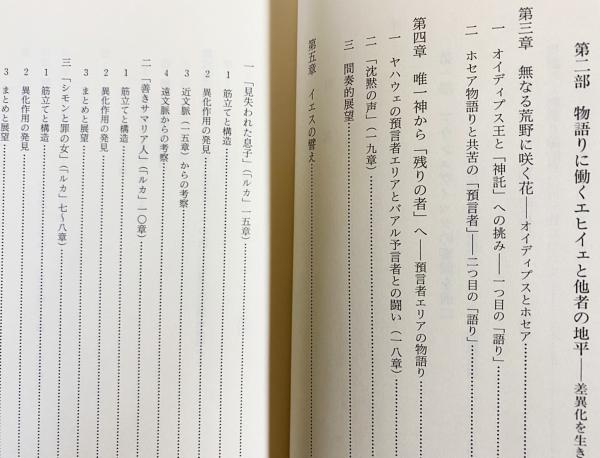 第二部 物語りに働くエヒイェと他者の地平――差異化を生き
第三章 無なる荒野に咲く花――オイディプスとホセア
一 オイディプス王と「神託」への挑み――一つ目の「語り」
二 ホセア物語りと共苦の「預言者」――二つ目の「語り」
第四章 唯一神から「残りの者」へ――預言者エリアの物語り
一 ヤハウェの預言者エリアとバアル予言者との闘い（一八章）
二 「沈黙の声」（一九章）
三 間奏的展望
第五章 イエスの譬え
一 「見失われた息子」（「ルカ」一五章）
1 筋立てと構造
2 異化作用の発見
3 近文脈（一五章）からの考察
4 遠文脈からの考察
二 「善きサマリア人」（「ルカ」一〇章）
1 筋立てと構造
2 異化作用の発見
3 まとめと展望
三 「シモンと罪の女」（「ルカ」七～八章）
1 筋立てと構造
2 異化作用の発見
3 まとめと展望